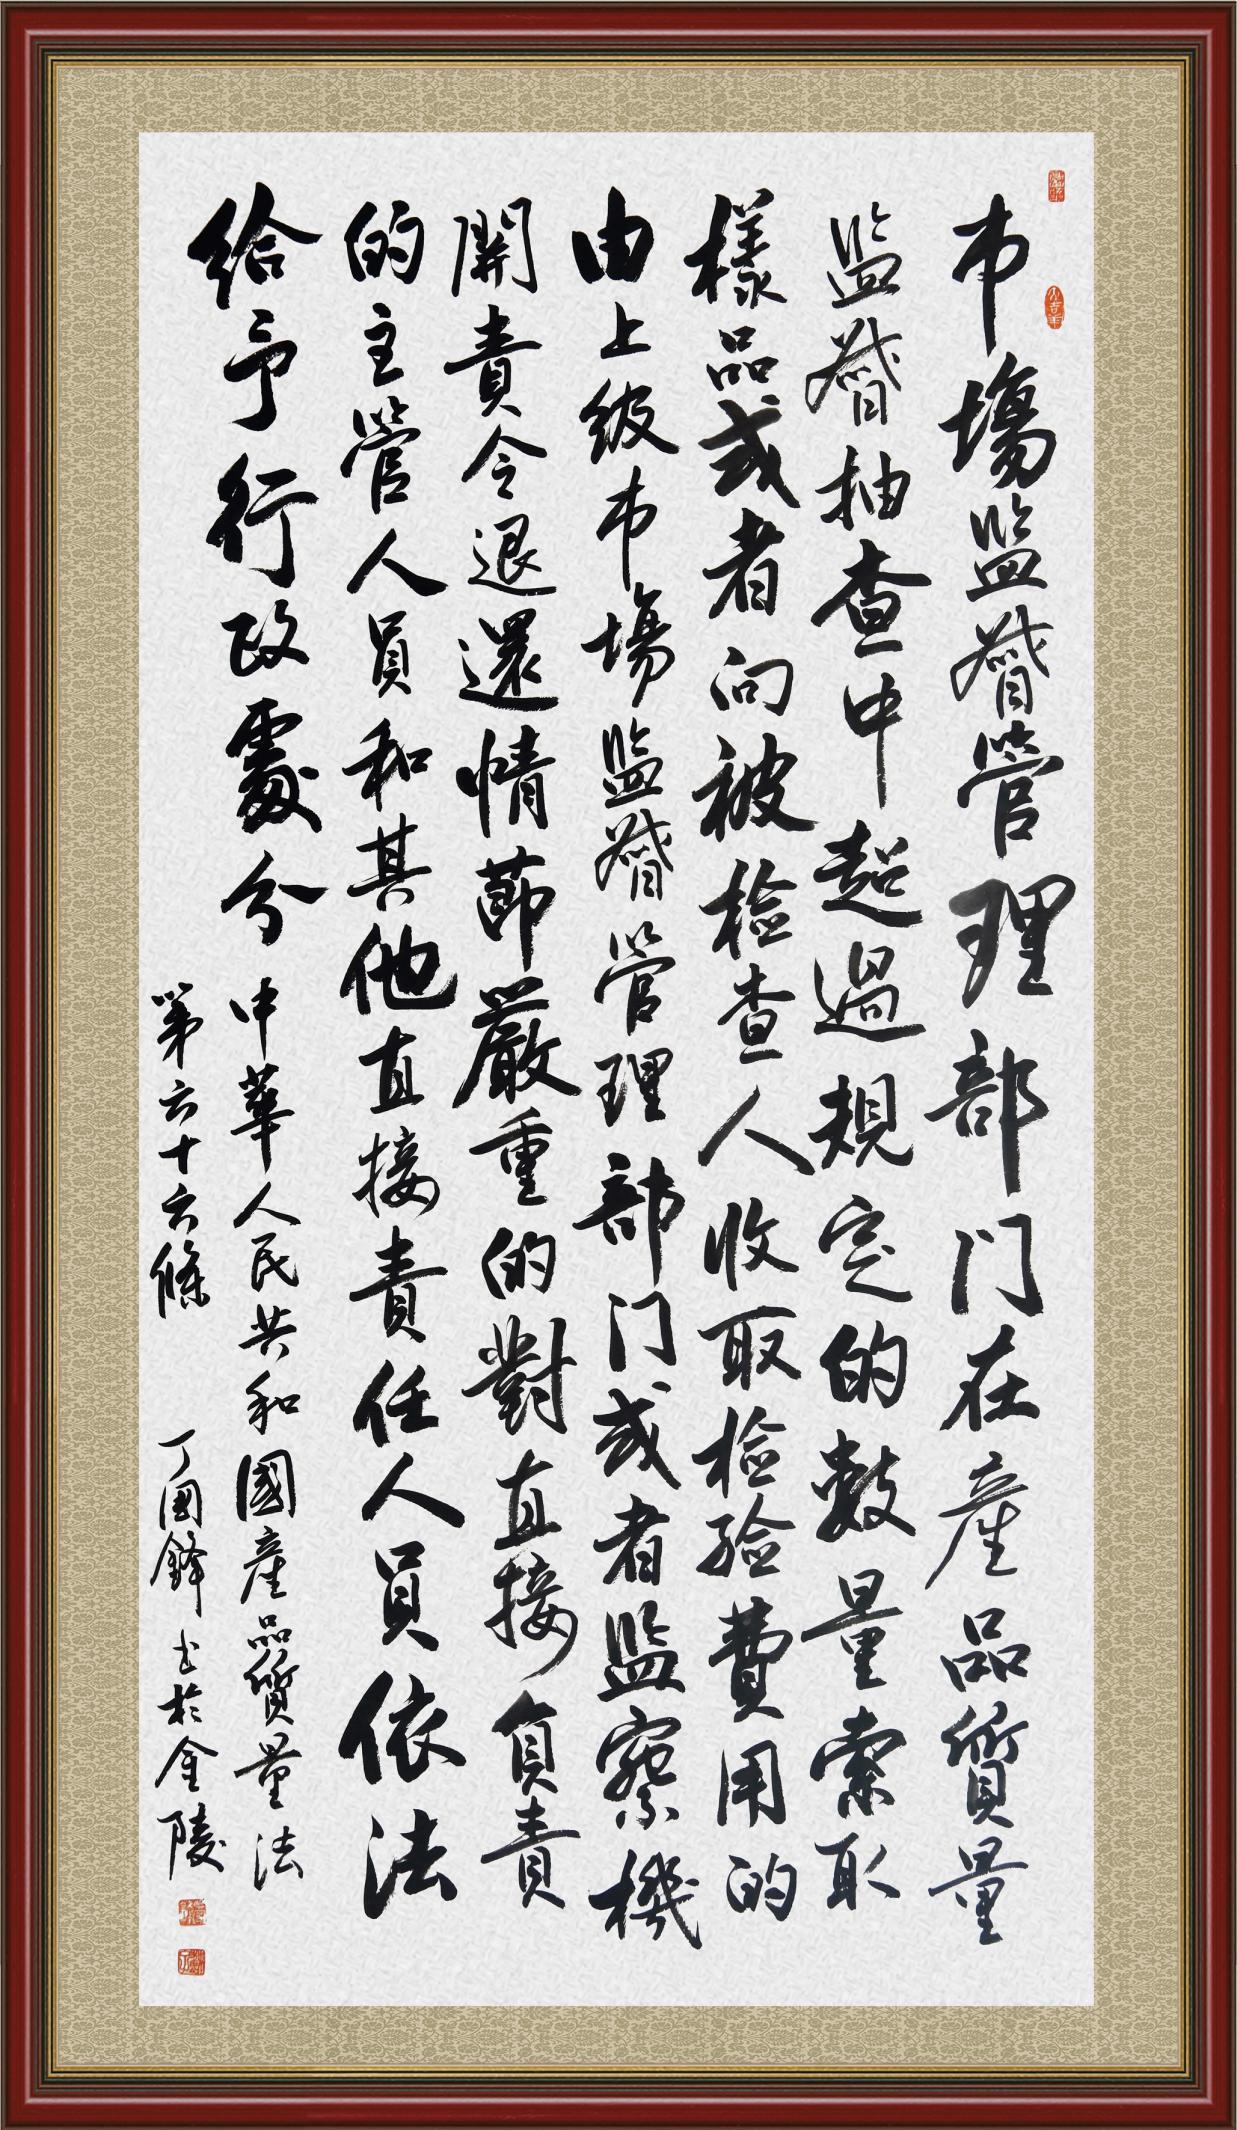 市場监督管理部门在産品質量
监督抽查中超過規定的數量索取
樣品或者向被检查人收取检验費用的
由上级市場监督管理部门或者监察機
關責令退還情節嚴重的對直接負責
的主管人員和其他直接責任人員依法
给予行政處分 中華人民共和國産品質量法
第六十六條 丁國鋒书於金陵
大吉羊